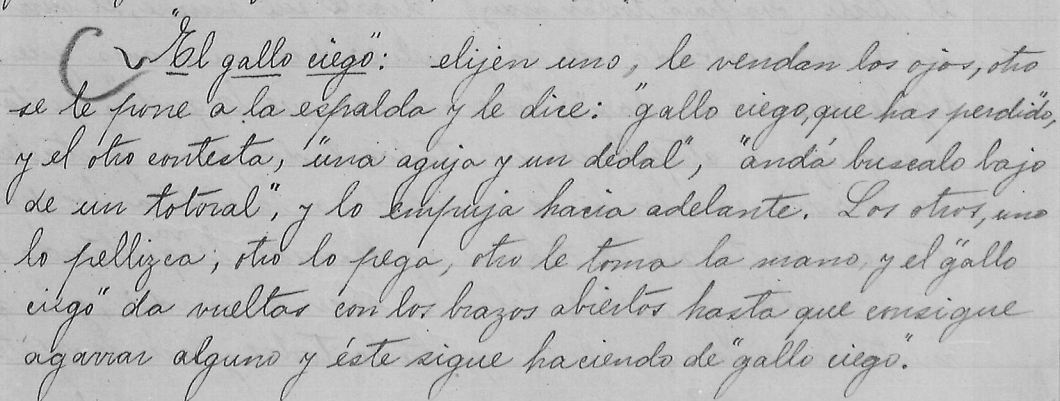 "El gallo ciego": elijen uno, le vendan los ojos, otro
se le pone a la espalda y le dice: "gallo ciego, que has perdido",
y el otro contesta, "una aguja y un dedal", "andá buscalo bajo
de un totoral", y lo empuja hacia adelante. Los otros, uno
lo pellizca, otro lo pega, otro le toma la mano, y el "gallo
ciego" da vueltas con los brazos abiertos hasta que consigue
agarrar alguno y éste sigue haciendo de "gallo ciego".